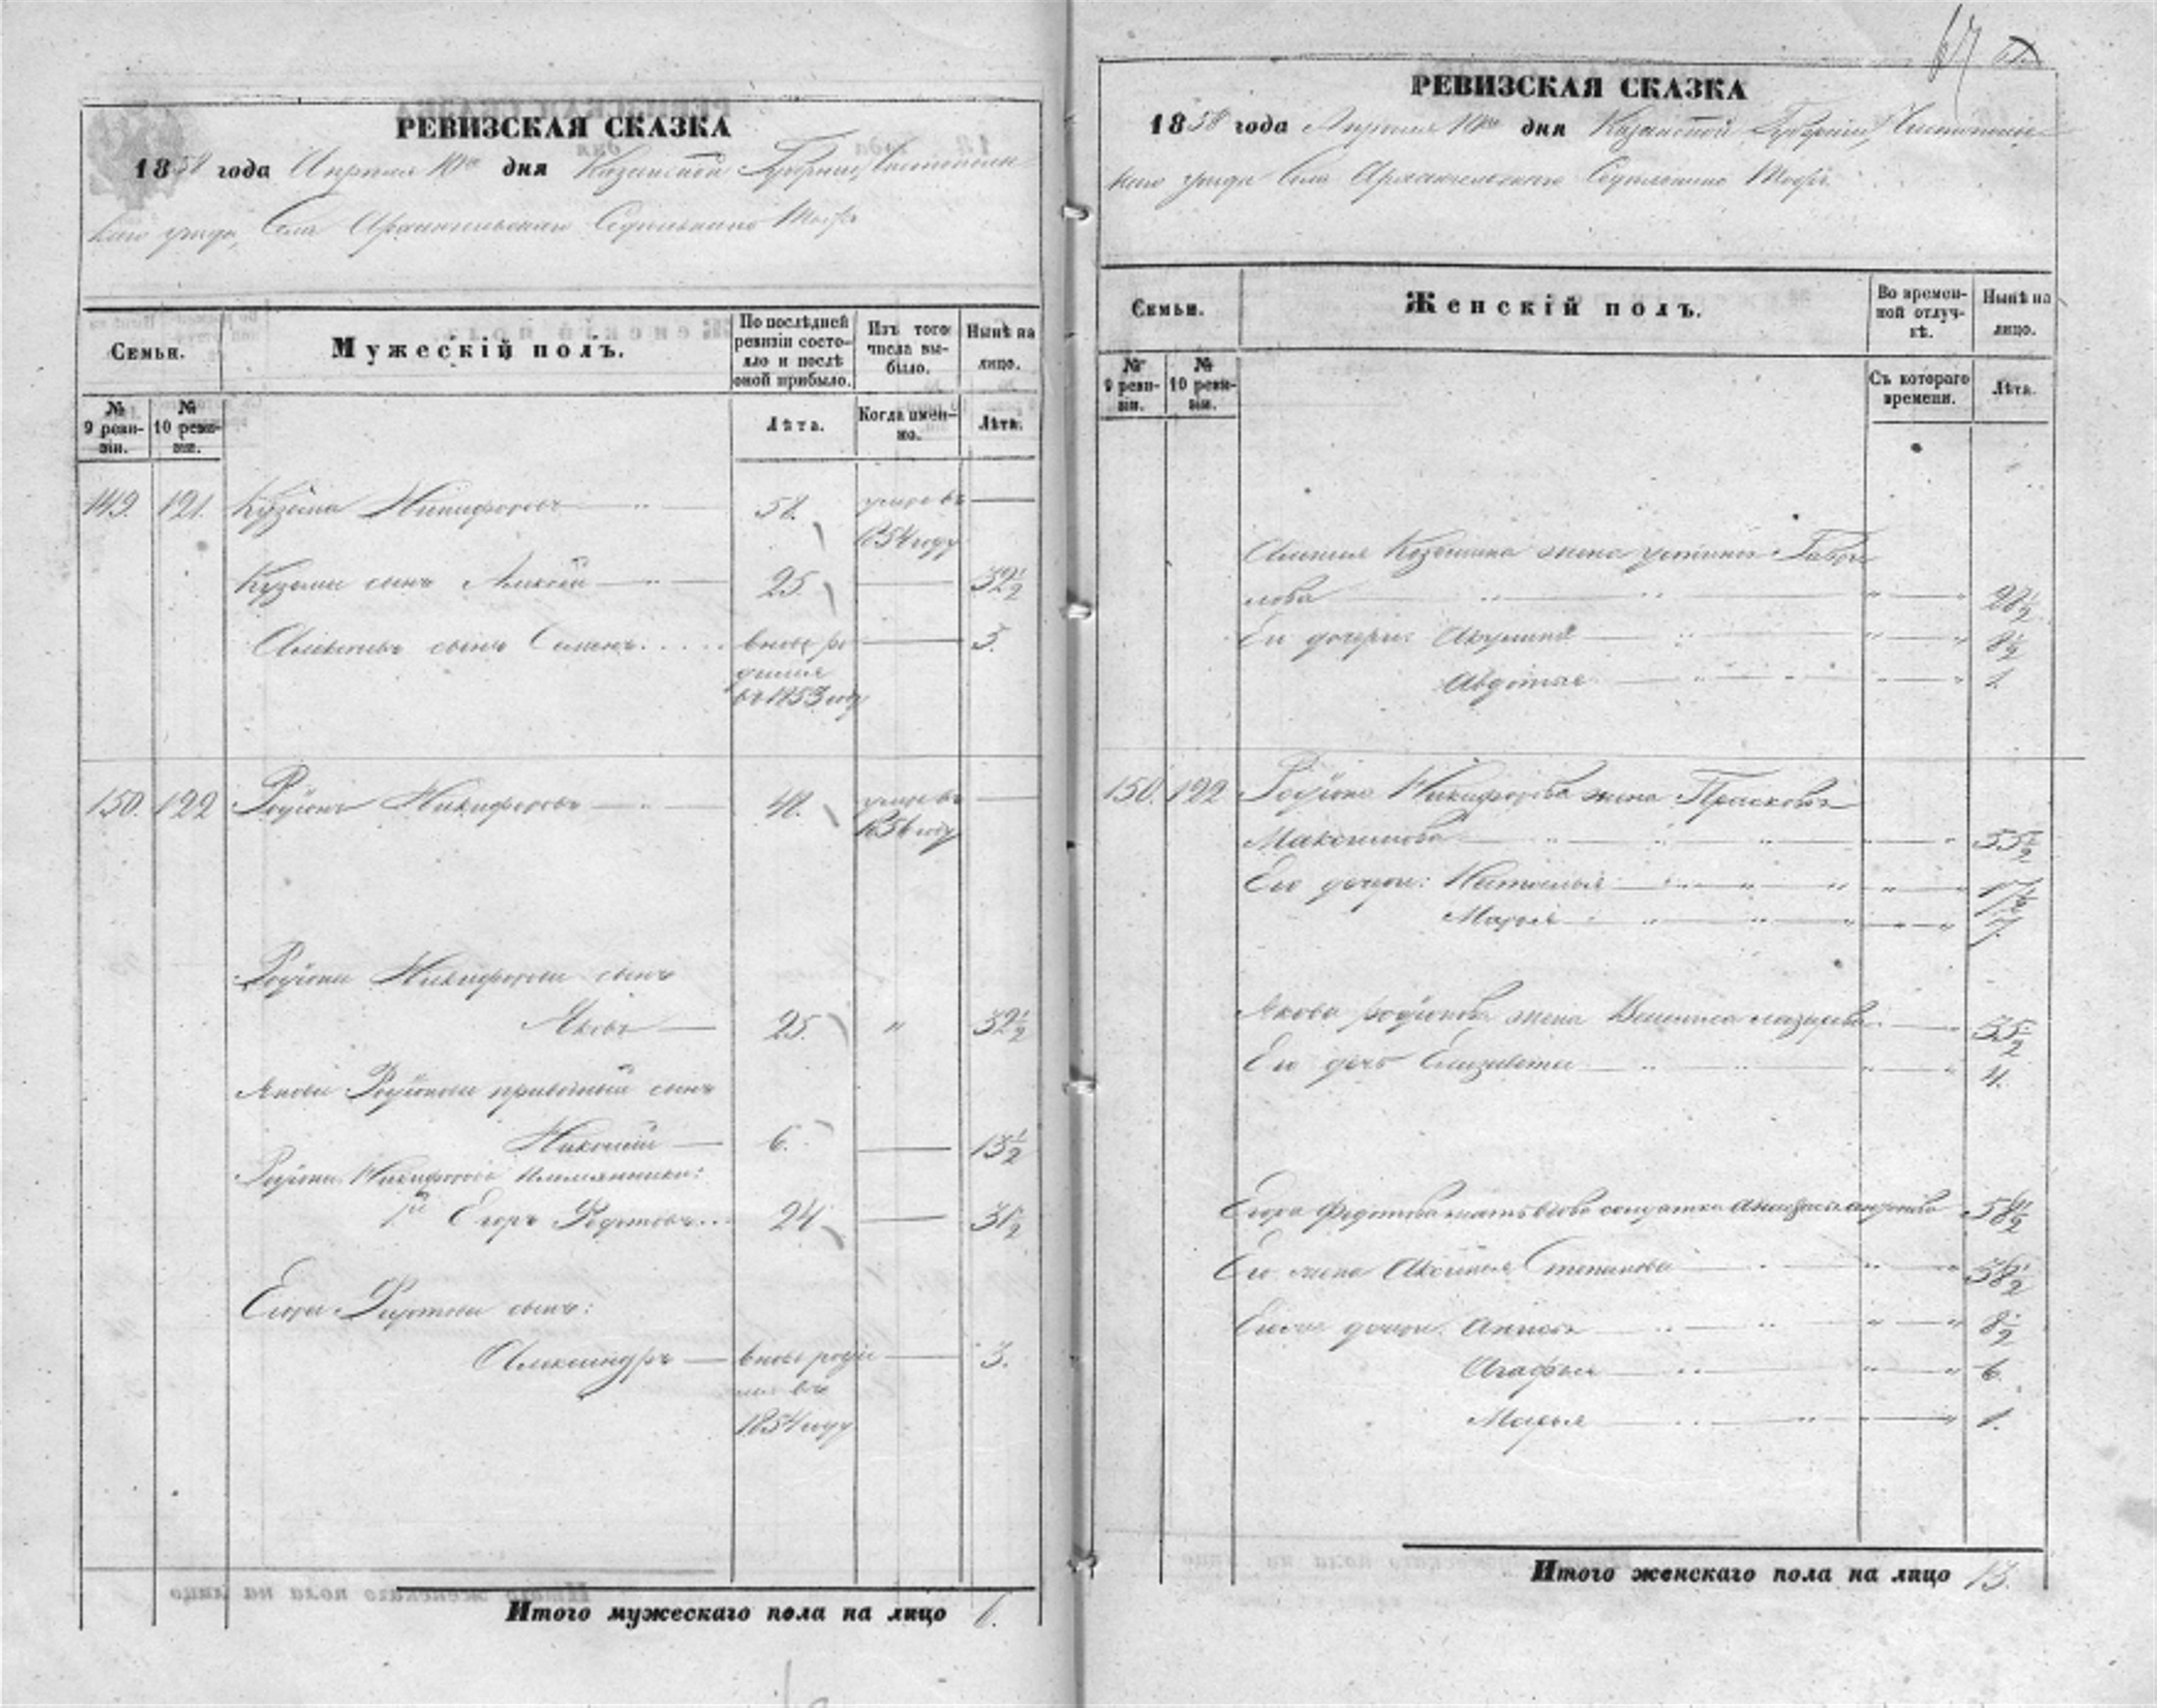 РЕВИЗСКАЯ СКАЗКА
1858 года Апреля 10го дня Казанской Губернии, Чистополь
скаго уезда, Села Архангельскаго
Семьи.
Мужескій полъ.
По послѣдней ревизіи состояло и послѣ оной прибыло.
Изъ того числа выбыло.
Нынѣ на лицо.
№ 9 ревизіи.
№ 10 ревизіи.
Лѣта.
Когда именно.
Лѣта.
149. 121. Кузьма Никифоровъ 58. умре въ
1854 году
Кузьмы сынъ Алексей 25. 32½
Алексеевъ сынъ Семенъ вновь ро 5.
дился
въ 1853 году
150. 122 Родіонъ Никифоровъ 48. умре въ
1856 году
Родіона Никифорова сынъ
Яковъ 25. " 32½
Якова Родіонова приводный сынъ
Николай 6. 13½
Родіона Никифорова племянники:
1й Егоръ Федотовъ 24 31½
Егора Федотова сынъ:
Александръ вновь роди 3.
лся въ
1854 году
Итого мужескаго пола на лицо 6.
67
РЕВИЗСКАЯ СКАЗКА
1858 года Апреля 10го дня Казанской Губерніи, Чистополь
скаго уезда Села Архангельскаго
Семьи.
Женскій полъ.
Во временной отлучкѣ.
Нынѣ на лицо.
№ 9 ревизіи.
№ 10 ревизіи.
Съ котораго времени.
Лѣта.
Алексея Козьмина жена Устинья Гаври
лова 28½
Ея дочери: Акулина 8½
Авдотья 1.
150. 122 Родіона Никифорова жена Прасковья
Максимова 55½
Его дочери: Наталья 17½
Марья 7.
Якова Родіонова жена Василиса Лазарева 35½
Его дочь Елизавета 4.
Егора Федотова мать вдова солдатка 58½
Его жена Аксинья Степанова 38½
Егоровы дочери: Анисья 8½
Агафья 6.
Марья 1.
Итого женскаго пола на лицо 13.